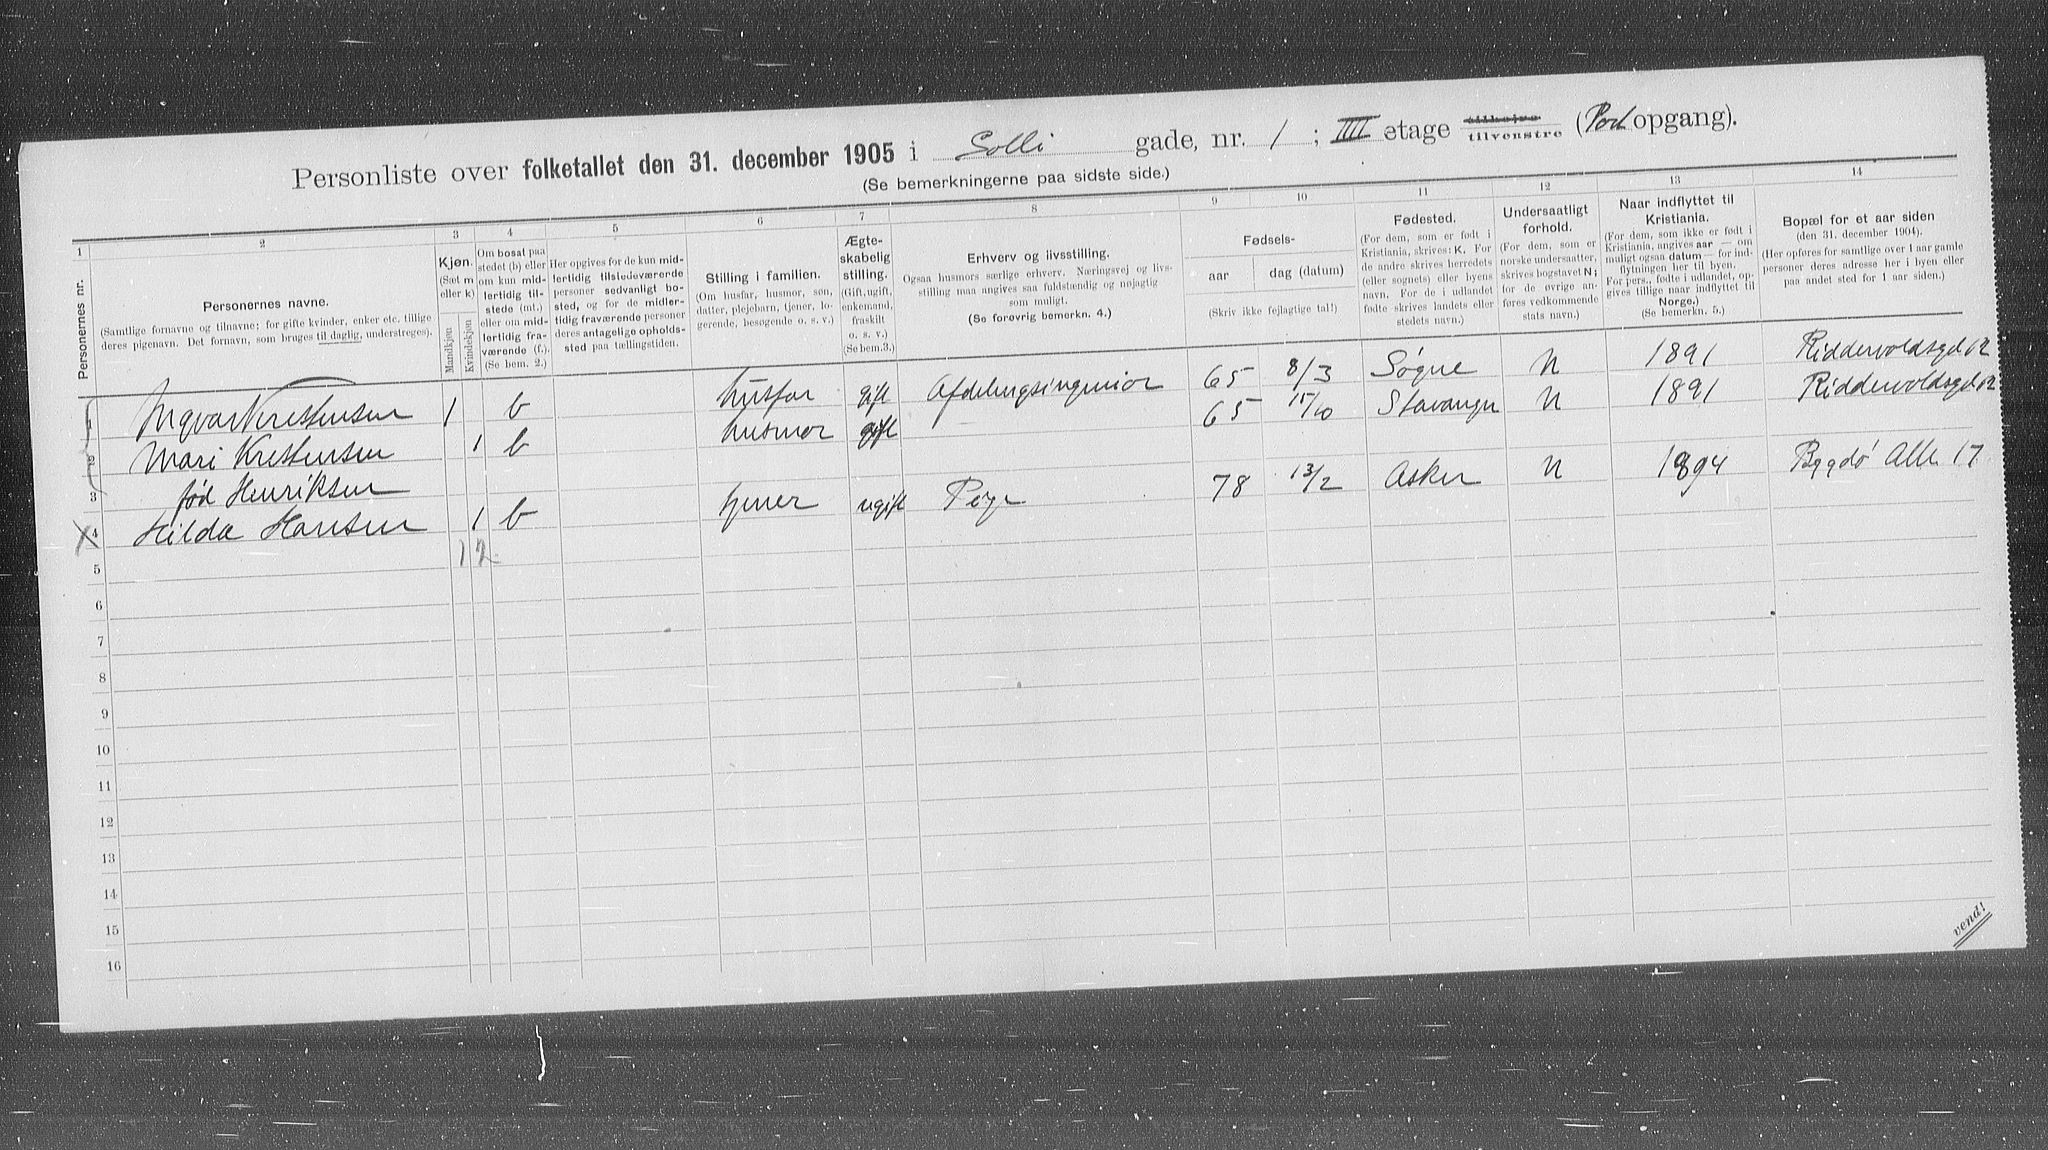 Personliste over folketallet den 31. december 1905 i Solli gade, nr. 1; IIII etage tilhøire tilvenstre (Port opgang).
(Se bemerkningerne paa sidste side.)
1 2 3 4 5 6 7 8 9 10 11 12 13 14
Personernes nr.
Personernes navne.
(Samtlige fornavne og tilnavne; for gifte kvinder, enker etc. tillige
deres pigenavn. Det fornavn, som bruges til daglig, understreges).
Kjøn.
(Sæt m
eller k)
Mandkjøn
Kvindekjøn
Om bosat paa
stedet (b) eller
om kun mid-
lertidig til-
stede (mt.)
eller om mid-
lertidig fra-
værende (f.).
(Se bem. 2.)
Her opgives for de kun mid-
lertidig tilstedeværende
personer sedvanligt bo-
sted, og for de midler-
tidig fraværende personer
deres antagelige opholds-
sted paa tællingstiden.
Stilling i familien.
(Om husfar, husmor, søn,
datter, plejebarn, tjener, lo-
gerende, besøgende o. s. v.)
Ægte-
skabelig
stilling.
(Gift, ugift,
enkemand,
fraskilt
o. s. v.)
(Se bem.3.)
Erhverv og livsstilling.
Ogsaa husmors særlige erhverv. Næringsvej og livs-
stilling maa angives saa fuldstændig og nøjagtig
som muligt.
(Se forøvrig bemerkn. 4.)
Fødsels-
aar
dag (datum)
(Skriv ikke fejlagtige tal!)
Fødested.
(For dem, som er født i
Kristiania, skrives: K. For
de andre skrives herredets
(eller sognets) eller byens
navn. For de i udlandet
fødte skrives landets eller
stedets navn.)
Undersaatligt
forhold.
(For dem, som er
norske undersaatter,
skrives bogstavet N;
for de øvrige an-
føres vedkommende
stats navn.)
Naar indflyttet til
Kristiania.
(For dem, som ikke er født i
Kristiania, angives aar — om
muligt ogsaa datum — for ind-
flytningen her til byen.
For pers., fødte i udlandet, op-
gives tillige naar indflyttet til
Norge.)
(Se bemerkn. 5.)
Bopæl for et aar siden
(den 31. december 1904).
(Her opføres for samtlige over 1 aar gamle
personer deres adresse her i byen eller
paa andet sted for 1 aar siden.)
1 Ingvar Kristensen 1 b husfar gift Afdelingsingeniør 65 8/3 Søgne N 1891 Riddervoldsgd 12
2 Mari Kristensen 1 b husmor gift 65 15/10 Stavanger N 1891 Riddervoldsgd 12
3 fød Henriksen
4 Hilda Hansen 1 b tjener ugift Pige 78 13/2 Asker N 1894 Bygdø Alle 17
5 1 2
6
7
8
9
10
11
12
13
14
15
16
vend!